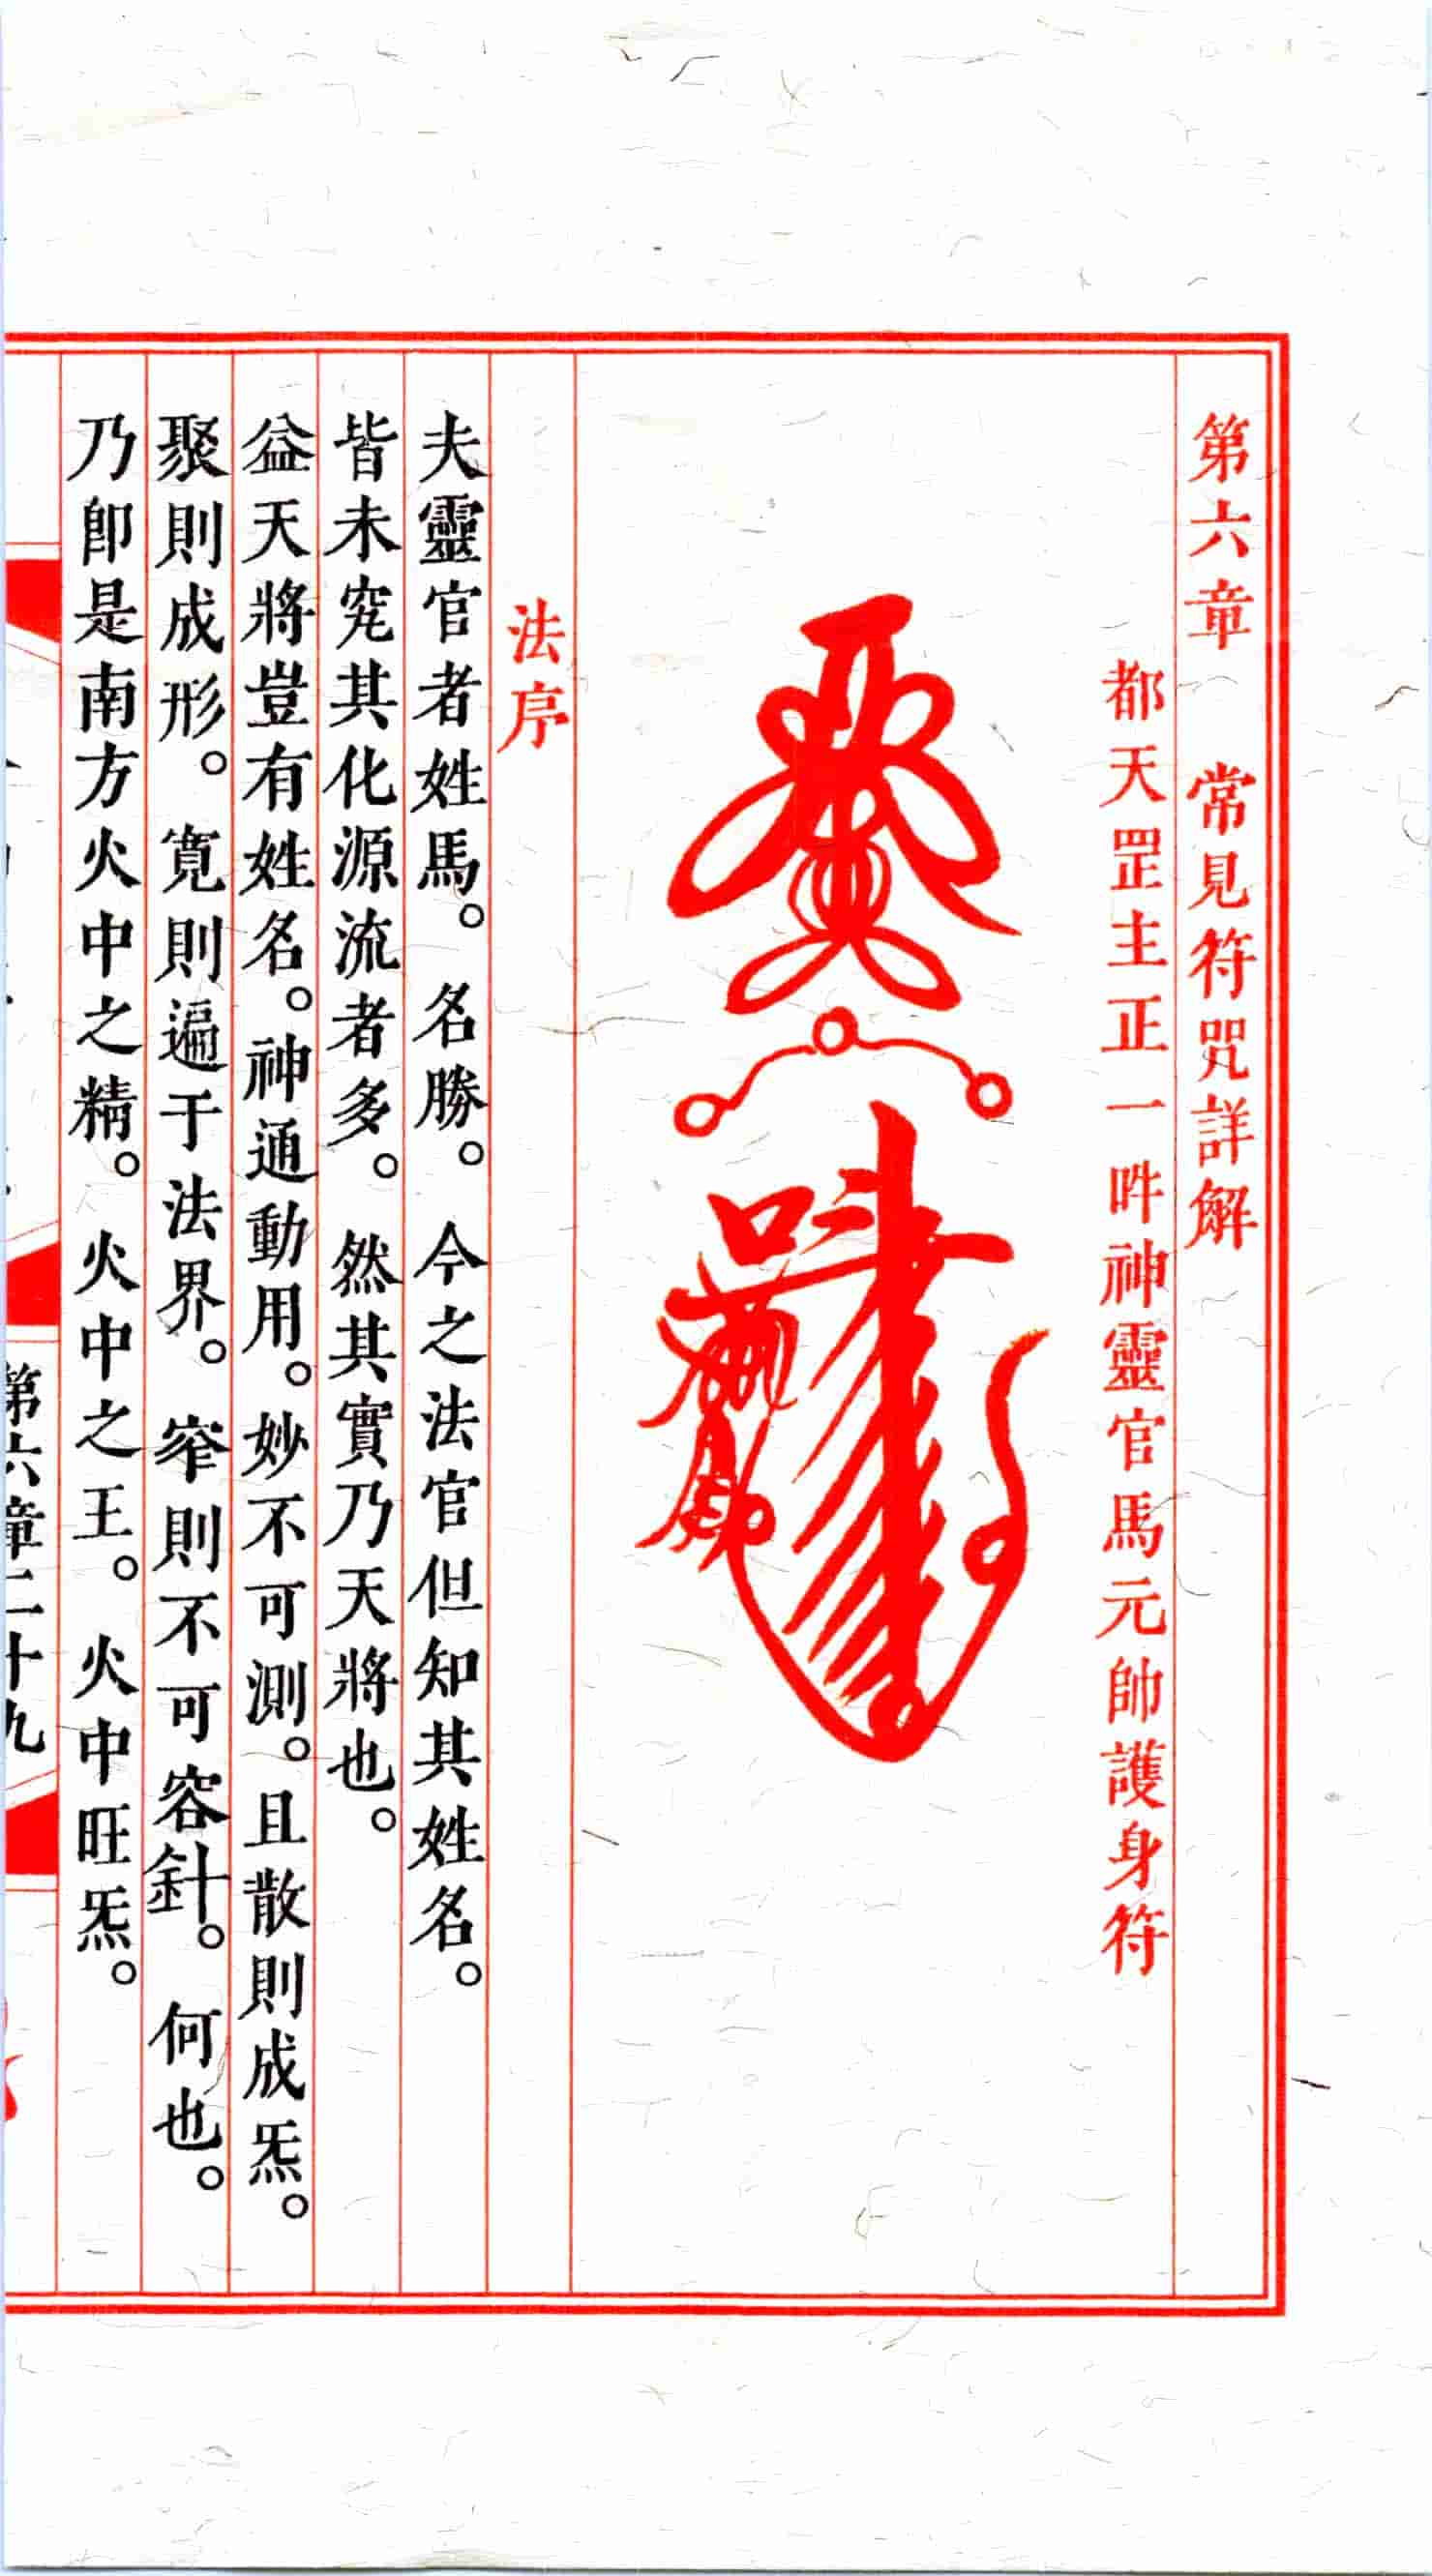 第六章　常見符咒詳解
都天罡主正一吽神靈官馬元帥護身符
法序
夫靈官者姓馬。名勝。今之法官但知其姓名。
皆未究其化源流者多。然其實乃天將也。
益天將豈有姓名。神通動用。妙不可測。且散則成炁。
聚則成形。寬則遍于法界。窄則不可容針。何也。
乃卽是南方火中之精。火中之王。火中旺炁。
第六章二十九